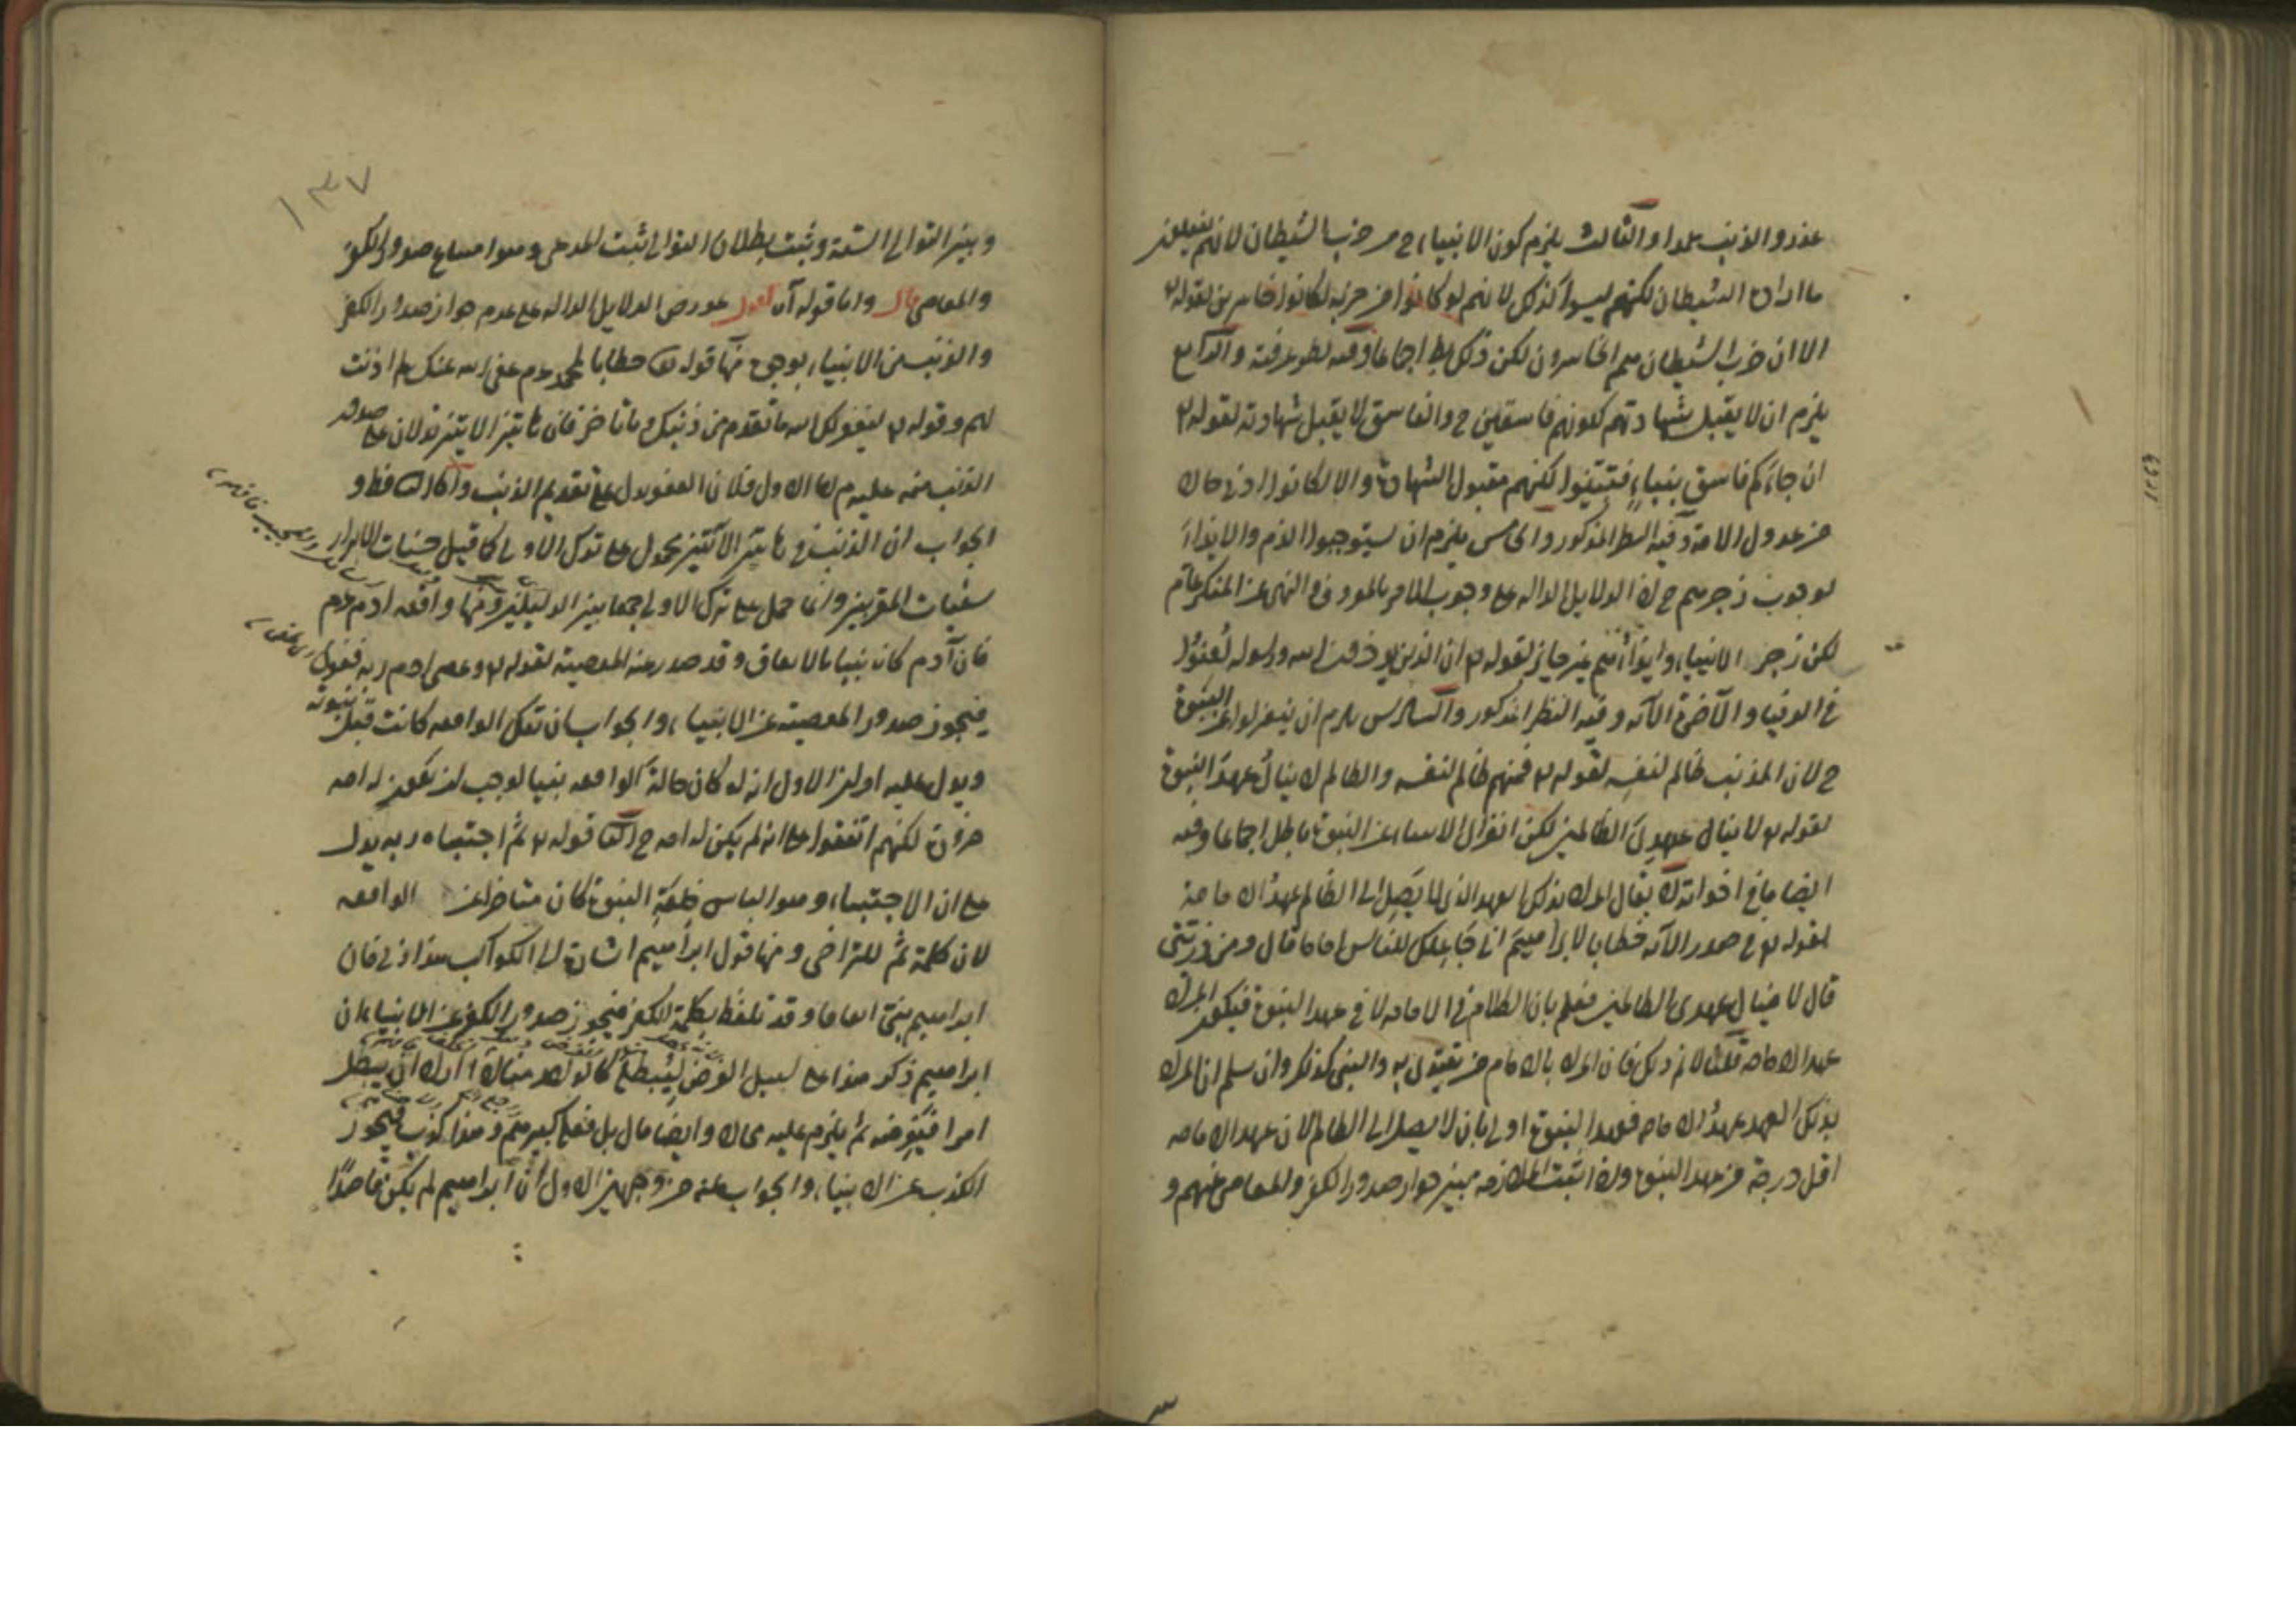 عذر والذنب والثالث يلزم كون الانبياء ح من حزب الشيطان لانهم يفعلون
ما اراد الشيطان لكنهم ليسوا كذلك لانهم لو كانوا من حزبه لكانوا خاسرين لقوله
الا ان حزب الشيطان هم الخاسرون لكن ذلك بط اجماعا وفيه نظر عرفته والرابع
يلزم ان لا يقبل شهادتهم لكونهم فاسقين ح والفاسق لا يقبل شهادته لقوله
ان جاءكم فاسق بنباء فتبينوا لكنهم مقبول الشهادة والا لكانوا ادنى حالا
من عدول الامة وفيه النظر المذكور والخامس يلزم ان يستوجبوا الذم والايذاء
لوجوب زجرهم ح لان الدلايل الدالة على وجوب الامر بالمعروف والنهى عن المنكر عام
لكن زجر الانبياء وايذائهم غير جايز لقوله ان الذين يؤذون الله ورسوله لعنوا
في الدنيا والآخرة الآية وفيه النظر المذكور والسادس يلزم ان ينعزلوا عن النبوة
ح لان المذنب ظالم لنفسه لقوله فمنهم ظالم لنفسه والظالم لا ينال عهد النبوة
لقوله لا ينال عهدى الظالمين لكن انعزال الانبياء عن النبوة باطل اجماعا وفيه
ايضا ما في اخواته لا يقال المراد بذلك العهد الذى لا يصل الى الظالم عهد الامامة
لقوله في صدر الآية خطابا لابراهيم انى جاعلك للناس اماما قال ومن ذريتى
قال لا ينال عهدى الظالمين فعلم بان الكلام في الامامة لا في عهد النبوة فيكون المراد
عهد الامامة قلنا لا نم ذلك فان المراد بالامام من يقتدى به والنبى كذلك وان سلم ان المراد
بذلك العهد عهد الامامة فعهد النبوة اولى بان لا يصل الى الظالم لان عهد الامامة
اقل درجة من عهد النبوة واذا ثبت الملازمة بين جواز صدور الكفر والمعاصى عنهم و
١٣٧
وبين التوالى الستة وثبت بطلان التوالى ثبت المدعى وهو امتناع صدور الكفر
والمعاصى قال واما قوله آه اقول عورض الدلايل الدالة على عدم جواز صدور الكفر
والذنب من الانبياء بوجوه منها قوله خطابا لمحمد عم عفى الله عنك لم اذنت
لهم وقوله ليغفر لك الله ما تقدم من ذنبك وما تاخر فان هاتين الآيتين تدلان على صدور
الذنب منه عليه م اما الاول فلان العفو يدل على تقديم الذنب واما الثانى فظ و
الجواب ان الذنب في هاتين الآيتين محمول على ترك الاولى كما قيل حسنات الابرار
سيئات المقربين وانما حمل على ترك الاولى جمعا بين الدليلين ومنها واقعة ادم عم
فان آدم كان نبيا بالاتفاق وقد صدر عنه المعصية لقوله وعصى ادم ربه فغوى
فيجوز صدور المعصية عن الانبياء والجواب ان تلك الواقعة كانت قبل نبوته
ويدل عليه امران الاول انه لو كان حالة الواقعة نبيا لوجب ان يكون له امة
ضرورة لكنهم اتفقوا على انه لم يكن له امة ح الثانى قوله ثم اجتباه ربه يدل
على ان الاجتباء وهو الباس خلعة النبوة كان متاخرا عن الواقعة
لان كلمة ثم للتراخى ومنها قول ابراهيم اشارة الى الكواكب هذا ربى فان
ابراهيم نبى اتفاقا وقد تلفظ بكلمة الكفر فيجوز صدور الكفر عن الانبياء وان
ابراهيم ذكر هذا على سبيل الفرض ليبطله كما لو اراد ان يبطل
امرا فيفرضه ثم يلزم عليه محالا وايضا قال بل فعله كبيرهم وهذا كذب فيجوز
الكذب عن الانبياء والجواب عنه من وجهين الاول ان ابراهيم لم يكن قاصدا